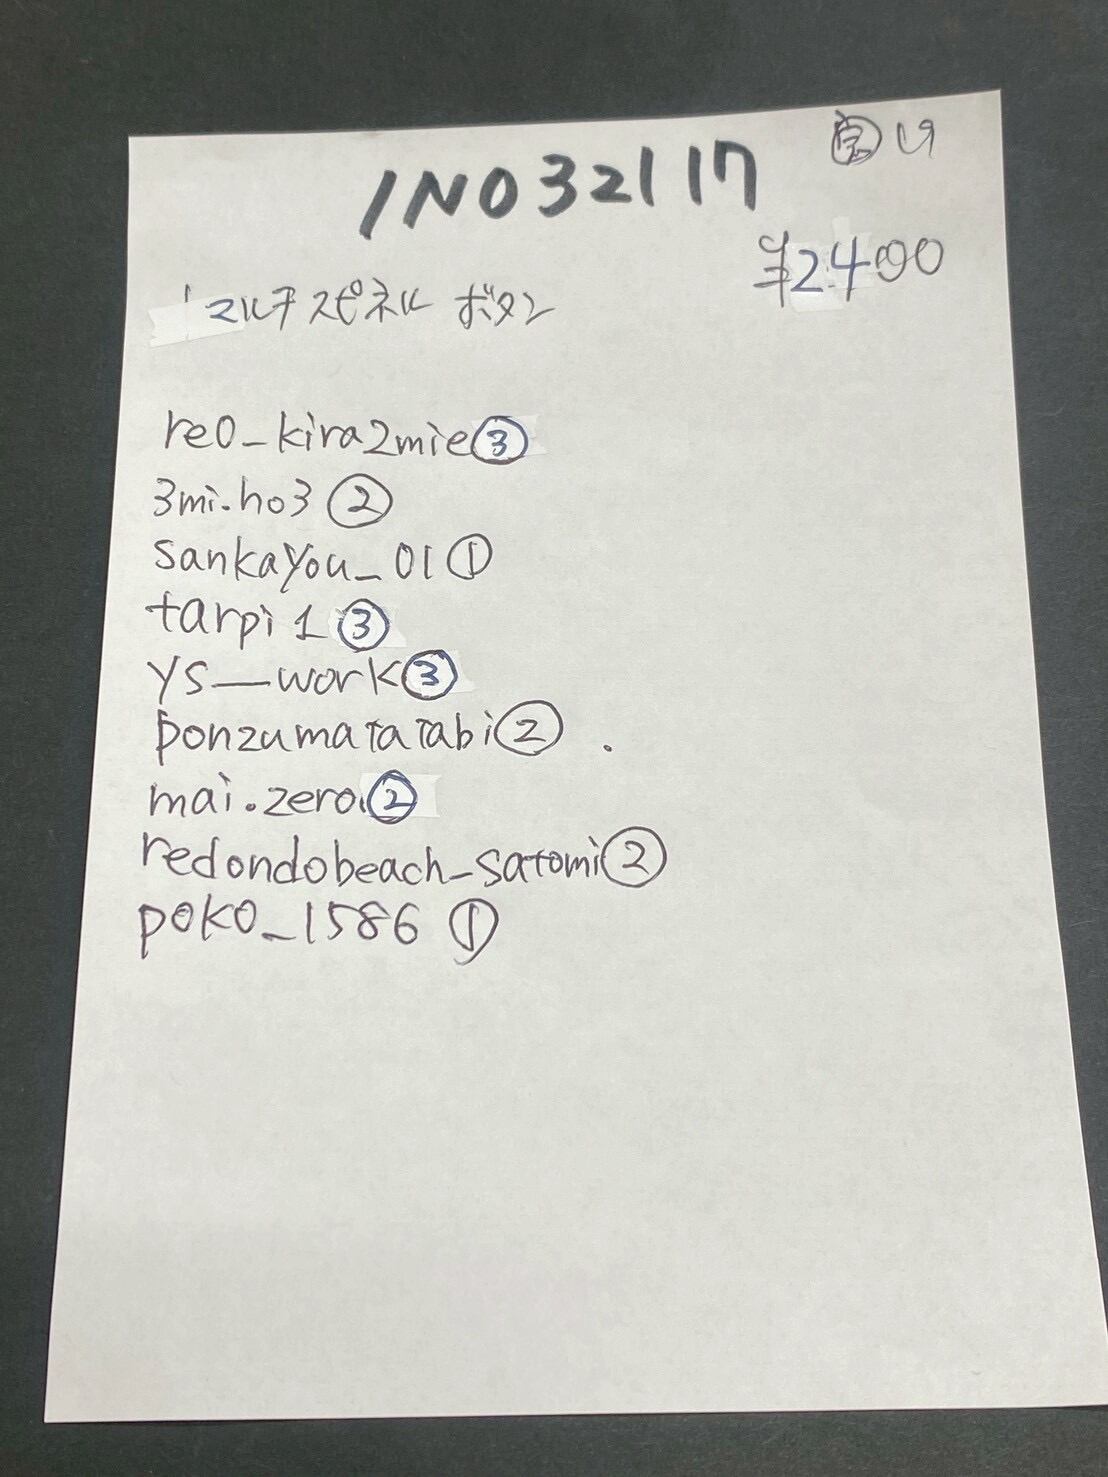 INO32117
¥2400
マルチスピネル ボタン
re0_kira2mie③
3mi.ho3②
sankayou_01①
tarpi1③
ys__work③
ponzumatatabi②
mai.zero.②
redondobeach_satomi②
poko_1586①